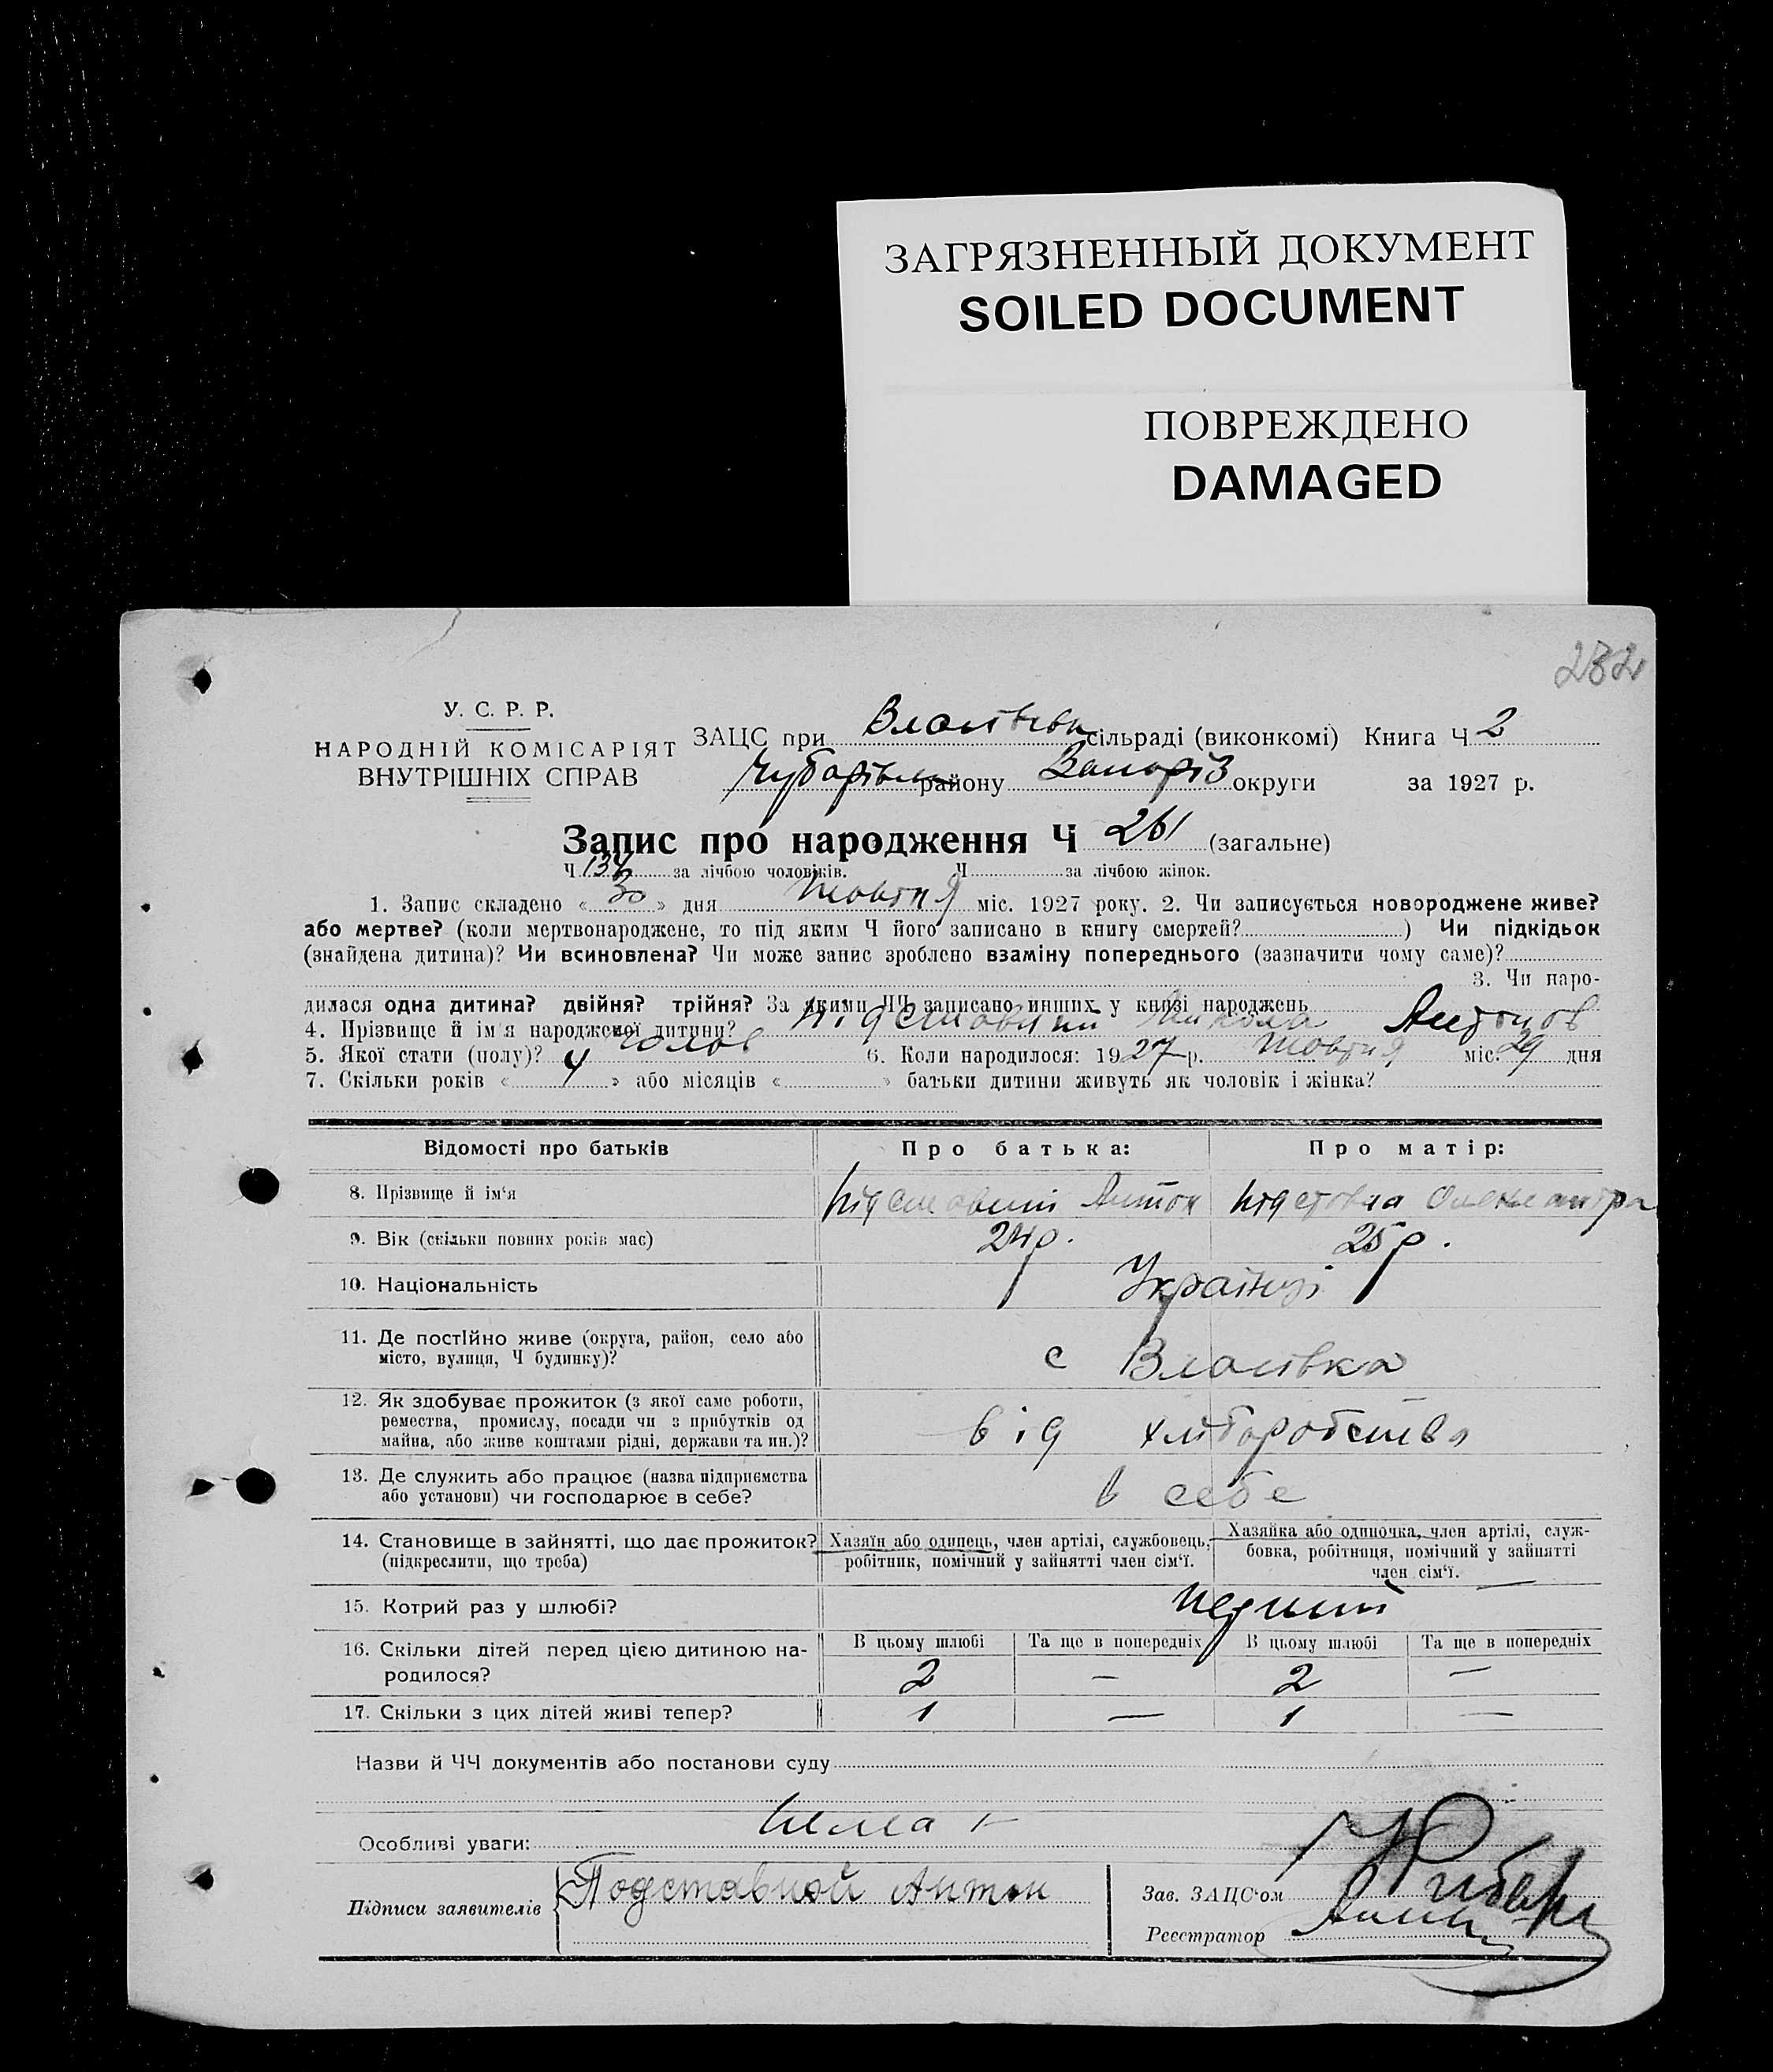 ЗАГРЯЗНЕННЫЙ ДОКУМЕНТ
SOILED DOCUMENT
ПОВРЕЖДЕНО
DAMAGED
232
У. С. Р. Р.
НАРОДНІЙ КОМІСАРІЯТ
ВНУТРІШНІХ СПРАВ
ЗАЦС при Власівськ сільраді (виконкомі) Книга Ч 2
Чубарівськ району Запоріз округи за 1927 р.
Запис про народження Ч 261 (загальне)
Ч 134 за лічбою чоловіків. Ч за лічбою жінок.
1. Запис складено « 30 » дня Жовтня міс. 1927 року. 2. Чи записується новороджене живе?
або мертве? (коли мертвонароджене, то під яким Ч його записано в книгу смертей? ) Чи підкідьок
(знайдена дитина)? Чи всиновлена? Чи може запис зроблено взаміну попереднього (зазначити чому саме)?
3. Чи наро-
дилася одна дитина? двійня? трійня? За якими ЧЧ записано инших у книзі народжень
4. Прізвище й ім'я народженої дитини? Підставний Микола Антонов
5. Якої стати (полу)? чолов 6. Коли народилося: 1927 р. Жовтня міс. 29 дня
7. Скільки років « 4 » або місяців « » батьки дитини живуть як чоловік і жінка?
Відомості про батьків Про батька: Про матір:
8. Прізвище й ім'я Підставний Антон Підставна Олександра
9. Вік (скільки повних років має) 24 р. 25 р.
10. Національність Українці
11. Де постійно живе (округа, район, село або
місто, вулиця, Ч будинку)? с Власівка
12. Як здобуває прожиток (з якої саме роботи,
ремества, промислу, посади чи з прибутків од
майна, або живе коштами рідні, держави та ин.)? від хліборобства
13. Де служить або працює (назва підприємства
або установи) чи господарює в себе? в себе
14. Становище в зайнятті, що дає прожиток?
(підкреслити, що треба)
Хазяїн або одинець, член артілі, службовець,
робітник, помічний у зайнятті член сім'ї.
Хазяйка або одиночка, член артілі, служ-
бовка, робітниця, помічний у зайнятті
член сім'ї.
15. Котрий раз у шлюбі? перший
16. Скільки дітей перед цією дитиною на-
родилося?
В цьому шлюбі Та ще в попередніх В цьому шлюбі Та ще в попередніх
2 — 2 —
17. Скільки з цих дітей живі тепер? 1 — 1 —
Назви й ЧЧ документів або постанови суду
Особливі уваги:
Підписи заявителів Подставной Антон
Зав. ЗАЦС'ом
Реєстратор